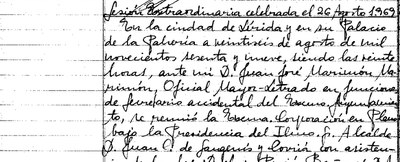 Sesión Extraordinaria celebrada el 26 Agosto 1969
En la ciudad de Lérida y en su Palacio
de la Pahería a veintiseis de agosto de mil
novecientos sesenta y nueve, siendo las veinte
horas, ante mi D. Juan José Marimón Ma-
rimón, Oficial Mayor-Letrado en funciones
de Secretario accidental del Excmo. Ayuntamien-
to, se reunió la Excma. Corporación en Pleno
bajo la Presidencia del Ilmo. S. Alcalde
D. Juan C. de Sangenís y Corriá con asisten-